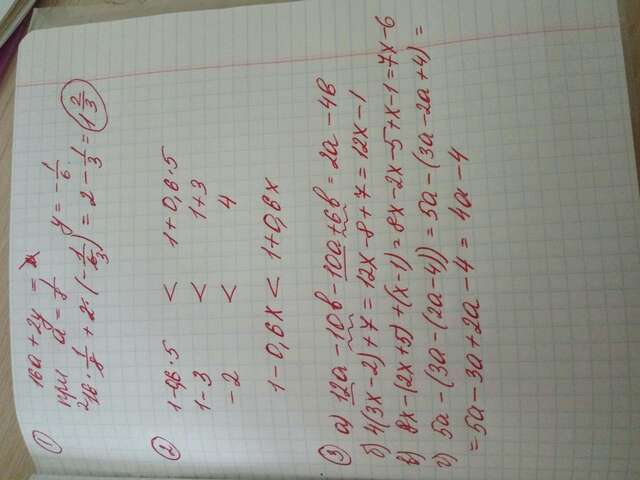 ① 16a + 2y =
при a = 1/8 y = -1/6
16 · 1/8 + 2 · (-1/6) = 2 - 1/3 = 1 2/3
② 1-0,6·5 < 1+0,6·5
1-3 < 1+3
-2 < 4
1-0,6x < 1+0,6x
③ а) 12a-10b-10a+6b = 2a-4b
б) 4(3x-2)+7 = 12x-8+7 = 12x-1
в) 8x-(2x+5)+(x-1) = 8x-2x-5+x-1 = 7x-6
г) 5a-(3a-(2a-4)) = 5a-(3a-2a+4) =
= 5a-3a+2a-4 = 4a-4